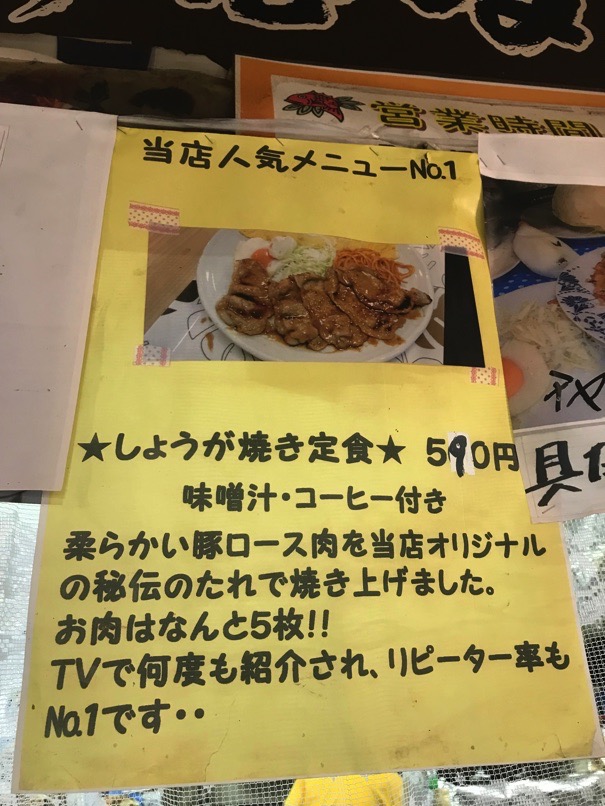 営業時間
当店人気メニューNo.1
★しょうが焼き定食★ 590円
味噌汁・コーヒー付き
柔らかい豚ロース肉を当店オリジナル
の秘伝のたれで焼き上げました。
お肉はなんと5枚!!
TVで何度も紹介され、リピーター率も
No.1です・・
具